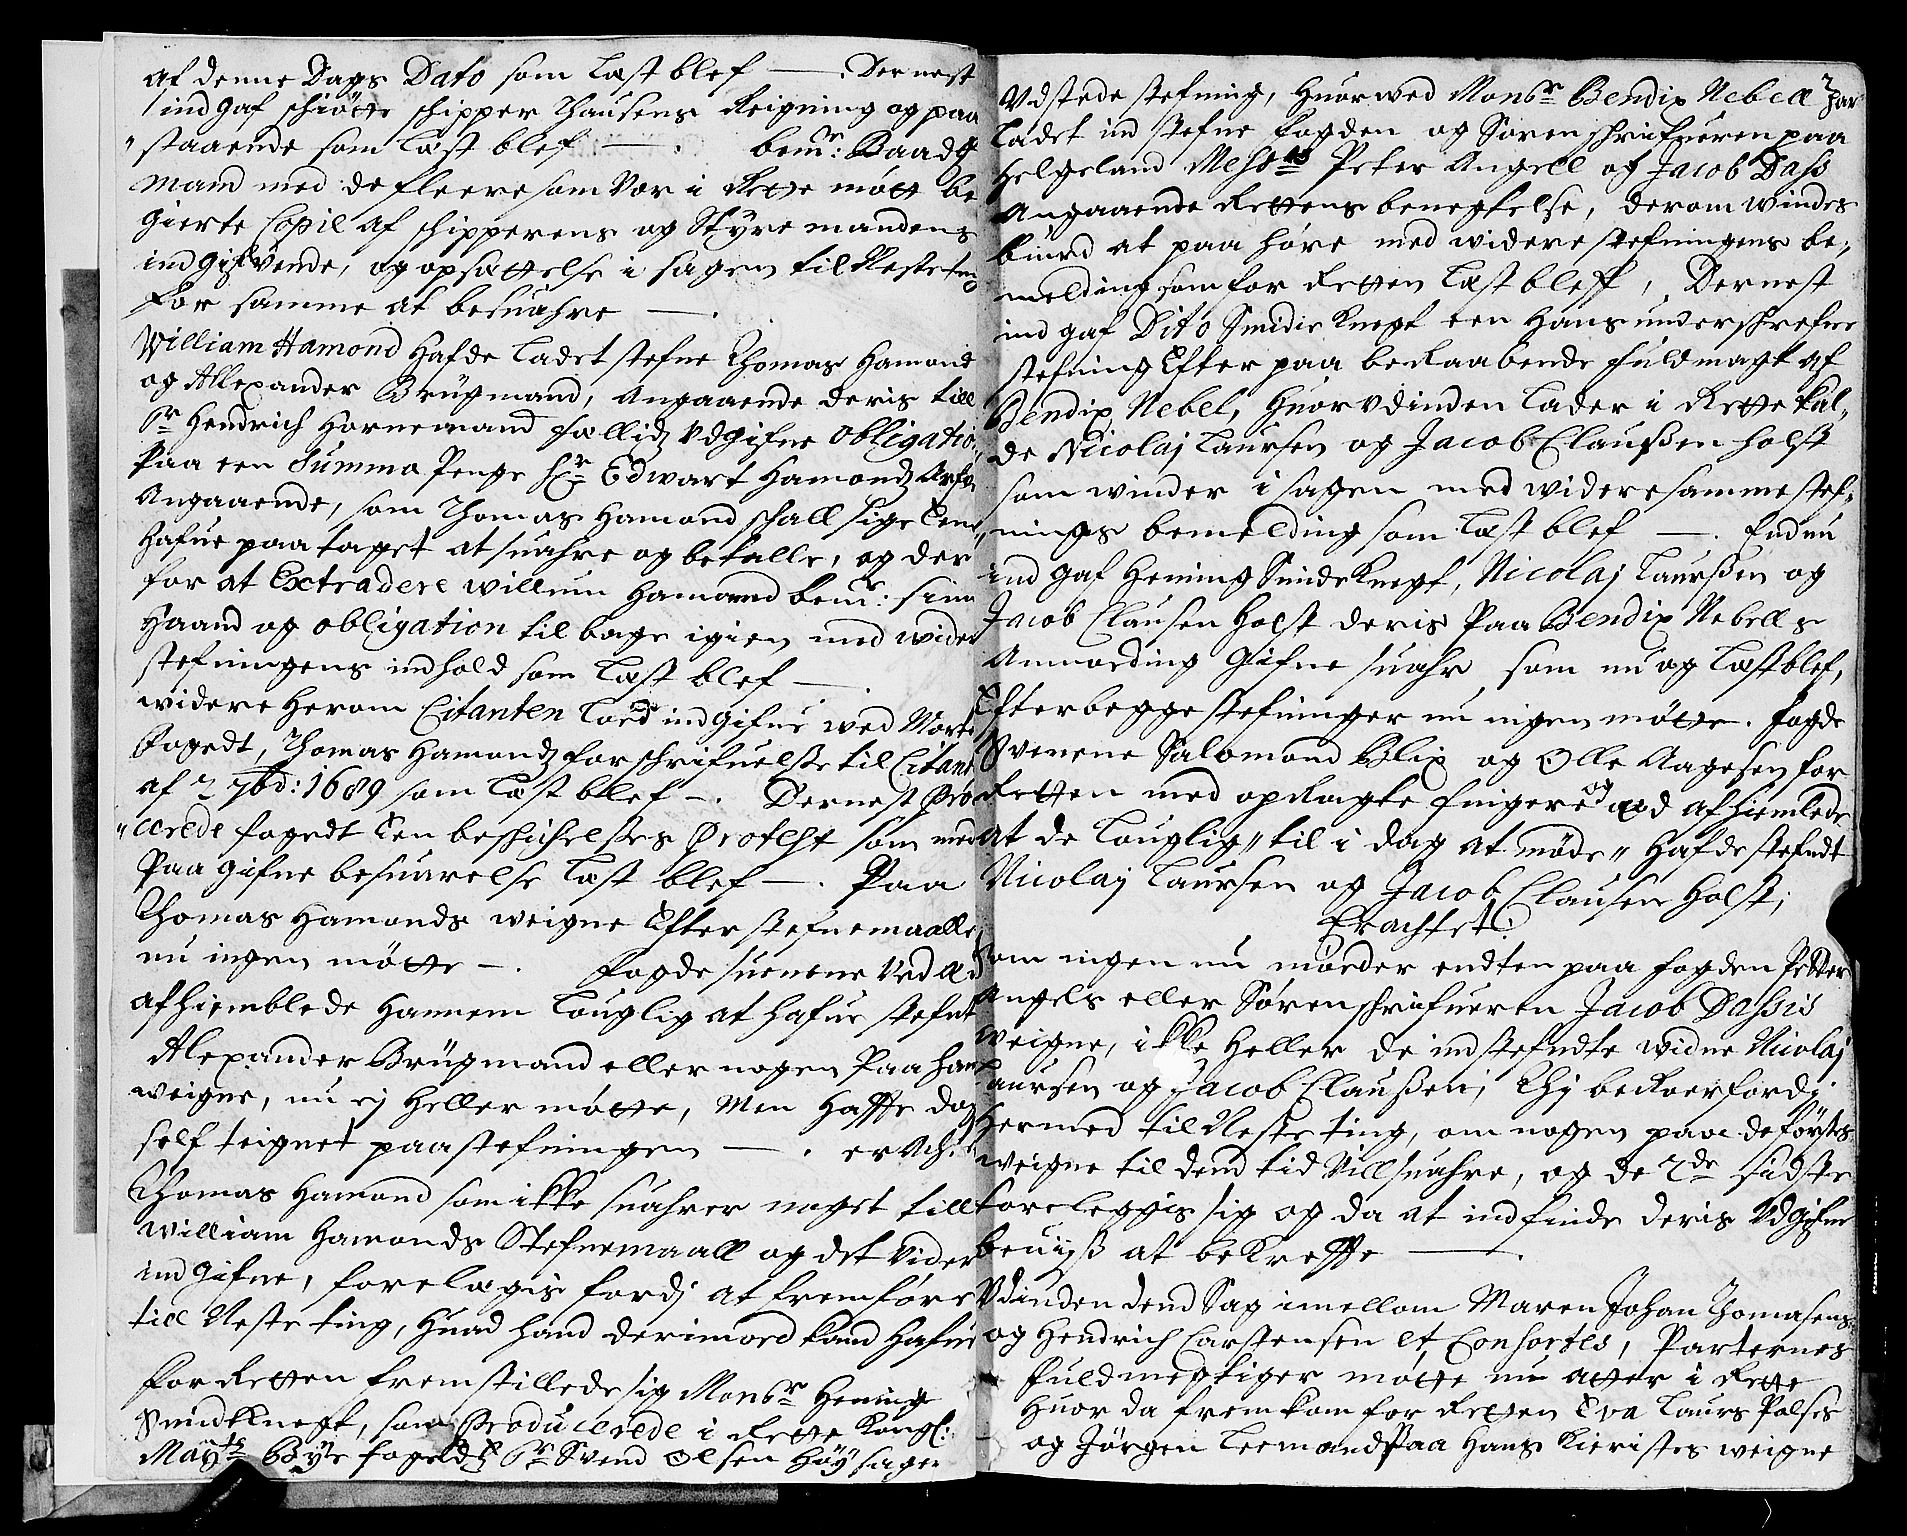 af denne Dags Dato som læst blef —. Dernest
indgaf schiötte schipper Thausens Reigning og paa
staaende som læst blef —. bemr: Baads
mand med de fleere som vor i Rette mötte be
gierte Copil af schipperens og Styremandens
indgifvende, og opsættelse i sagen til Neste ting
for samme at besuahre —.
William Hamond Hafde ladet stefne Thomas Hamond
og Allexander Brügmand, Angaaende deris till
Sr Hendrich Hornemand sællig Udgifne obligatio
paa een Summa Penge Sr Edwart Hamonds Arfve
Angaaende, som Thomas Hamond schall sige Eene
hafue paataget at suahre og betalle, og der
for at Extradere willum Hamond bemr: sinn
Haand og obligation tilbage igien med wider
stefningens indhold som læst blef —.
widere Herom Citanten loed indgifue ved Morten
Fogedt, Thomas Hamonds forschrifuelsse til Citant
af 2 7bd: 1689 som læst blef —. Dernest Pro
cerede fogedt Een beschichelses Protest som med
Paagifne besuarelse læst blef —. Paa
Thomas Hamonds weigne Efter stefnemaallet
nu ingen mötte —. fogde suenene ved Ed
afhiemblede Hannem louglig at hafue stefnt
Alexander Brügmand eller nogen Paa hans
weigne, nu ej Heller mötte, Men Haffr dog
self teignet paa stefningen —. er Ach:
Thomas Hamond som ikke suahrer noget till
William Hamonds Stefnemaall og det vider
indgifne, forelægis fordj at fremföre
till Neste ting, Huad hand derimoed kand hafue
for Retten fremstillede sig Monsr Hening
SmidtKneft, som Producerede i Rette Kongl:
Maytz Bye fogeds Sr Svend Olsen Höysager
Udstede stefning, Huorwed Monsr Bendix Nebell har
ladet ind stefne fogden og Sorenschrifueren paa
Helgeland Messrs Peter Angell og Jacob Dass
Angaaende Rettens benegtelse, derom windes
biurd at paahöre med widere stefningens be
melding som for Retten læst bleff, Dernest
indgaf Dito Smidie Kneft een Hans underschrefne
stefning Efter paa beraabende fuldmagt af
Bendix Nebel, Huorudinden lader i Rette kal
de Nicolaj Laursen og Jacob Claussen Holst
som winder i sagen med widere samme stef
nings bemelding som læst blef —. Endnu
indgaf Hening SmideKneft, Nicolaj Laurssen og
Jacob Clausen Holst deris Paa Bendix Nebells
Anmoding Gifne suahr som nu og læst blef,
Efter begge stefninger nu ingen mötte. fogde
Svenene Salomond Blix og Olle Aagesen for
Retten med opragte fingere og ed afhiemlede
at de louglig til i dag at möde Hafde stefndt
Nicolaj Laursen og Jacob Clausen Holst;
Erachtet.
Som ingen nu moeder endten paa fogden Petter
Angels eller Sörenschrifueren Jacob Dassis
weigne, ikke Heller de indstefndte widne Nicolaj
Laursen og Jacob Claussen; Thj beroer fordj
Hermed til Neste ting, om nogen paa de förstes
weigne til dend tid will suahre, og de 2de sidste
foreleggis sig og da at indfinde deris Udgifne
beuiiss at bekreffte —.
Udinden dend Sag imellom Maren Johan Thomasens
og Hendrich Carstensen et Consortes, Parternes
fuldmegtiger mötte nu atter i Rette
Huor da fremkom for Retten Eva Laurs Palses
og Jörgen Leemand Paa Hans Kieristes weigne